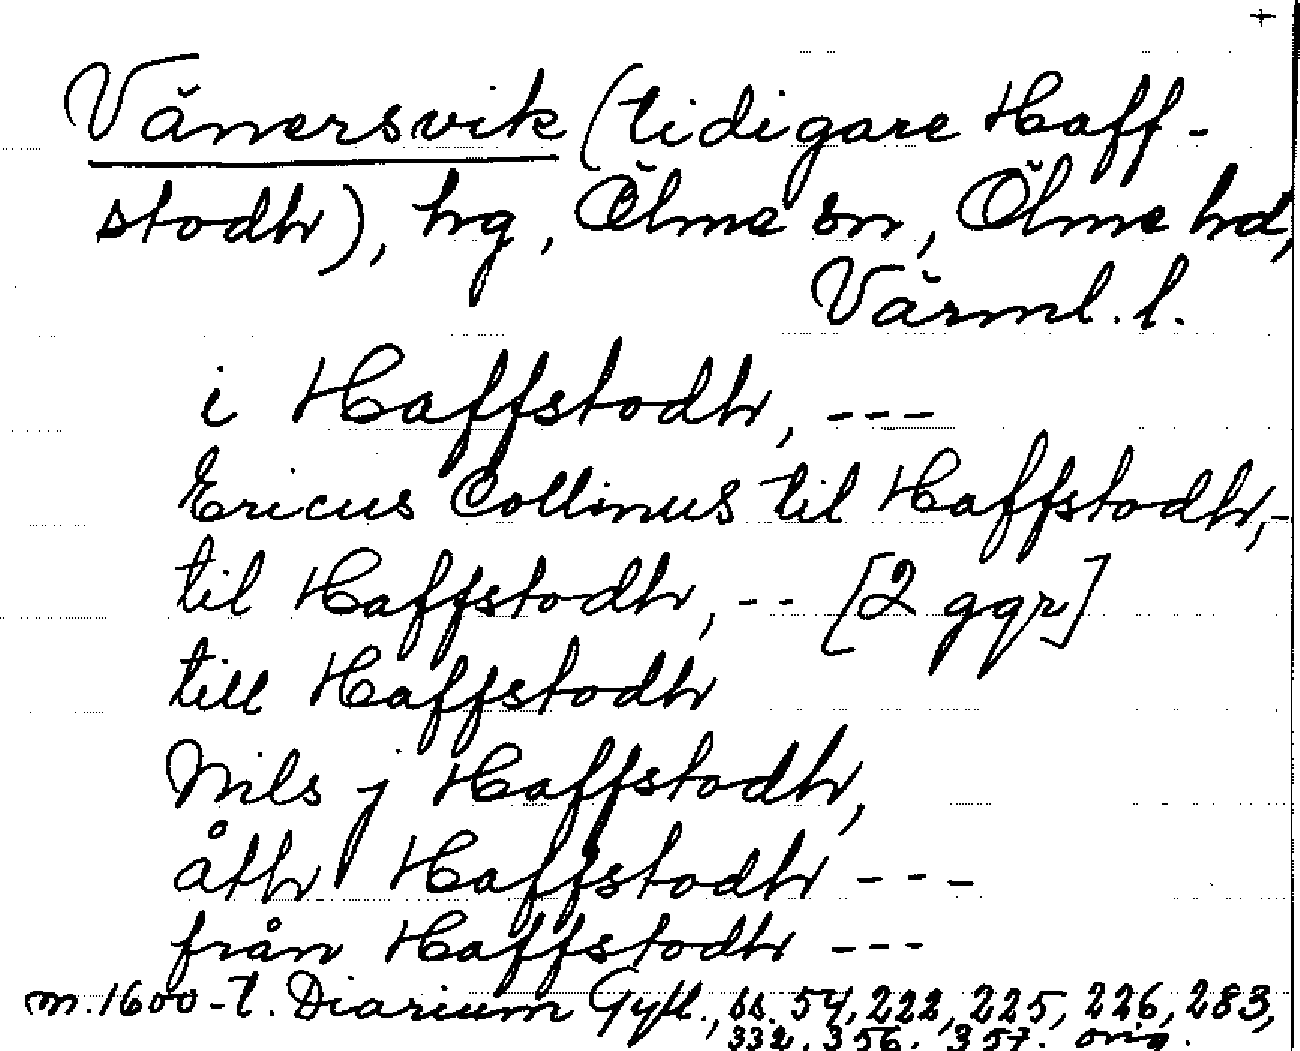 +
Vänersvik (tidigare Haff-
stodh), hg, Ölme sn, Ölme hd,
Värml. l.
i Haffstodh, ---
Ericus Collinus til Haffstodh, -
til Haffstodh, -- [2 ggr]
till Haffstodh
Nils j Haffstodh,
åth Haffstodh ---
från Haffstodh ---
m. 1600-t. Diarium Gyll., ss. 54, 222, 225, 226, 283,
332, 356, 357. orig.